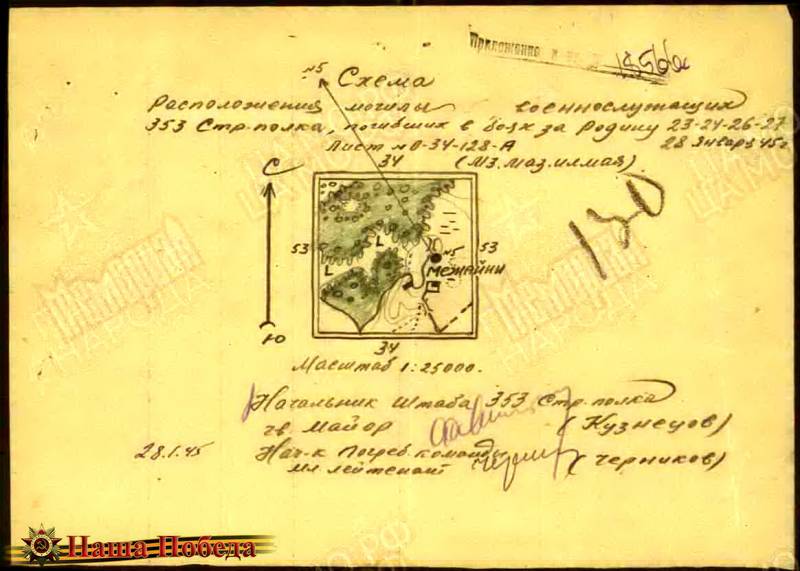 Приложение
1356с
№5
Схема
Расположения могилы военнослужащих
353 Стр. полка, погибших в боях за Родину 23-24-26-27
Лист № О-34-128-А 28 Января 45г
34 (Мз. Маз. илмая)
С
130
53 53
№5
L
L
Межайни
L
Ю
34
Масштаб 1:25000.
Начальник Штаба 353 Стр. полка
гв. Майор (Кузнецов)
28.1.45 Нач-к Погреб. команды
мл лейтенант (Черников)
Память народа
ЦАМО.РФ
Наша Победа